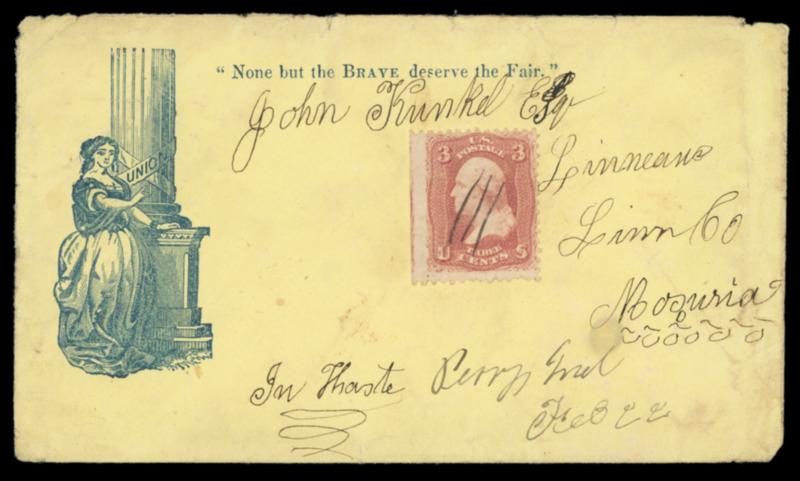 “ None but the BRAVE deserve the Fair.”
John Kunkel Esqr
Linneaus
Linn Co
Mosuria
UNION
3 U.S. POSTAGE 3
U THREE CENTS S
In Haste
Perry Ind
Feb 22